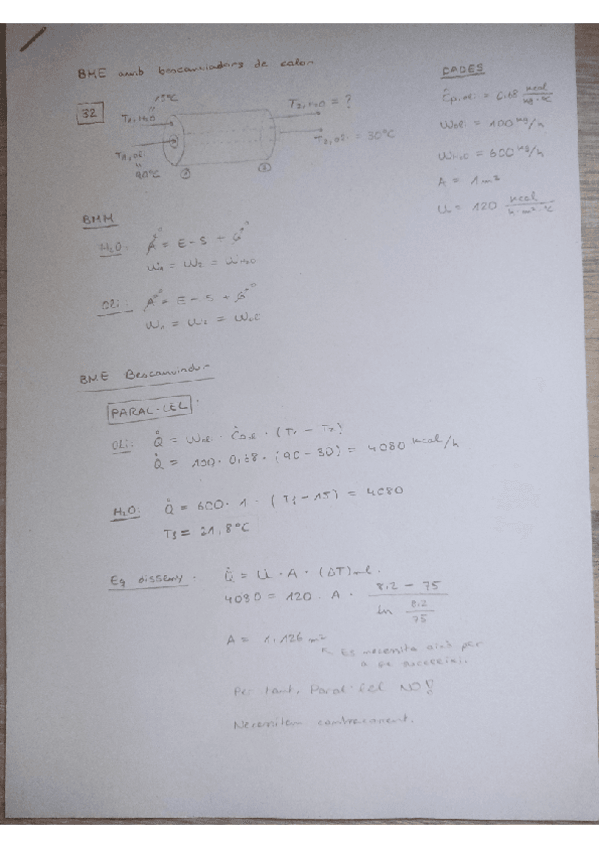 BME amb bescanviadors de calor
DADES
32
15°C
T1, H2O
T2, H2O = ?
T1, oli
90°C
T2, oli = 30°C
1
2
Ĉp, oli = 0,68 kcal/kg·°C
Woli = 100 kg/h
WH2O = 600 kg/h
A = 1 m²
U = 120 kcal/h·m²·°C
BMM
H2O: A = E - S + G
W1 = W2 = WH2O
Oli: A = E - S + G
W1 = W2 =
BME Bescanviador
PARAL·LEL
Oli: Q̇ = Woli · Ĉoli · (T1 - T2)
Q̇ = 100 · 0,68 · (90 - 30) = 4080 kcal/h
H2O: Q̇ = 600 · 1 · (T3 - 15) = 4080
T3 = 21,8°C
Eq disseny: Q̇ = U · A · (ΔT)ml.
4080 = 120 · A · (8.2 - 75) / (ln 8.2/75)
A = 1.126 m²
Es necesita això per
a
Per tant, Paral·lel NO!
Necesitem contracorrent.